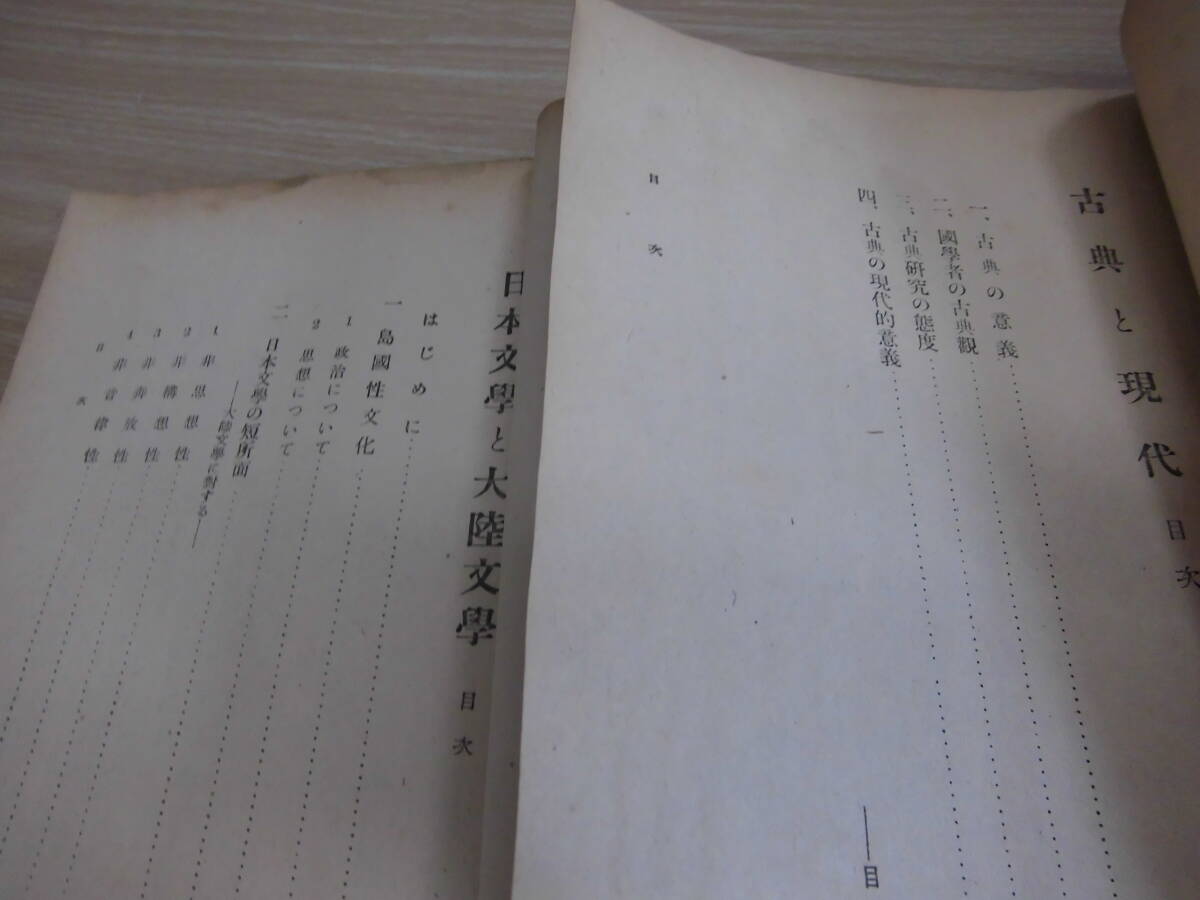 古典と現代 目次
一、古典の意義
二、國學者の古典觀
三、古典研究の態度
四、古典の現代的意義
目次
一
目
日本文學と大陸文學 目次
はじめに
一 島國性文化
1 政治について
2 思想について
二 日本文學の短所面
——大陸文學に對する——
1 非思想性
2 非構想性
3 非奔放性
4 非音律性
目次